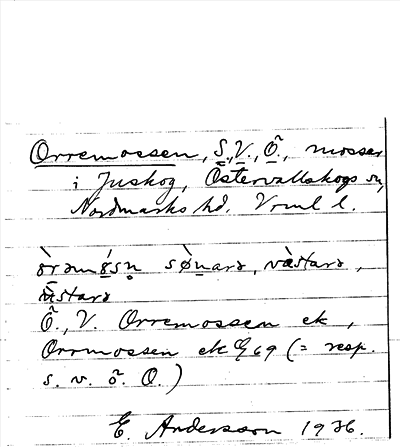 Orremossen, S., V., Ö., mossar
i Juskog, Östervallskogs sn,
Nordmarks hd. Vrml l.
òrəmó̱sn̥ sø̀narə, væ̀starə,
ø̀starə
Ö., V. Orremossen ek,
Orrmossen ek G 69 (= resp.
s. v. ö. O.)
E. Andersson 1936.